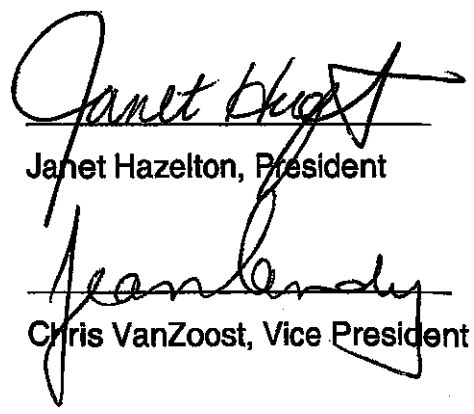 Janet
Janet Hazelton, President
Jean Candy
Chris VanZoost, Vice President